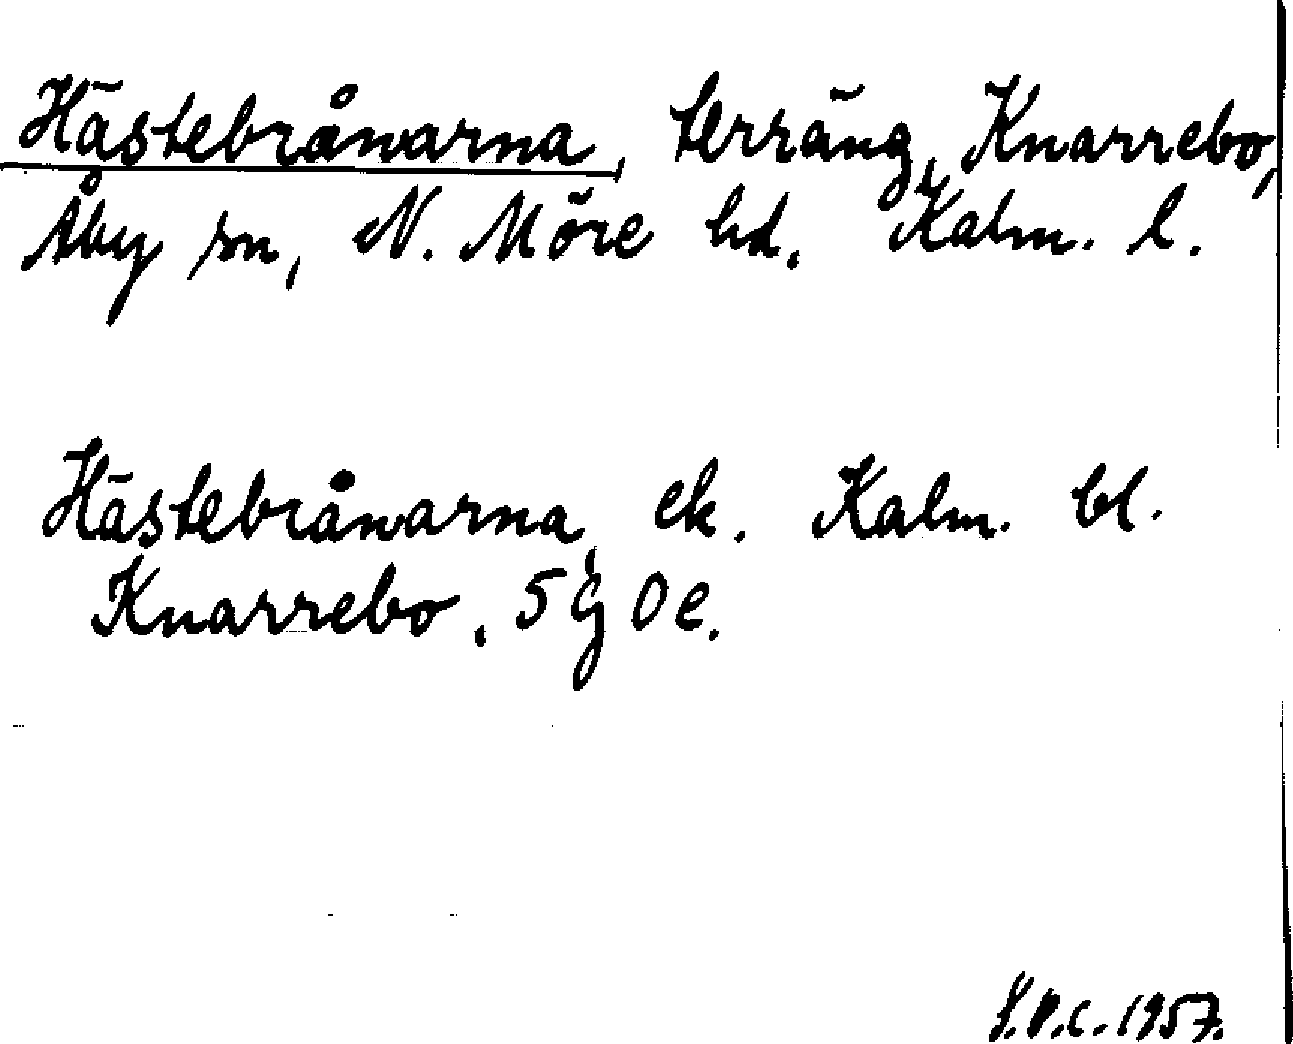 Hästebrånarna, terräng, Knarrebo,
Åby sn, N. Möre hd. Kalm. l.
Hästebrånarna, ek. Kalm. bl.
Knarrebo. 5 G 0 e.
1957.